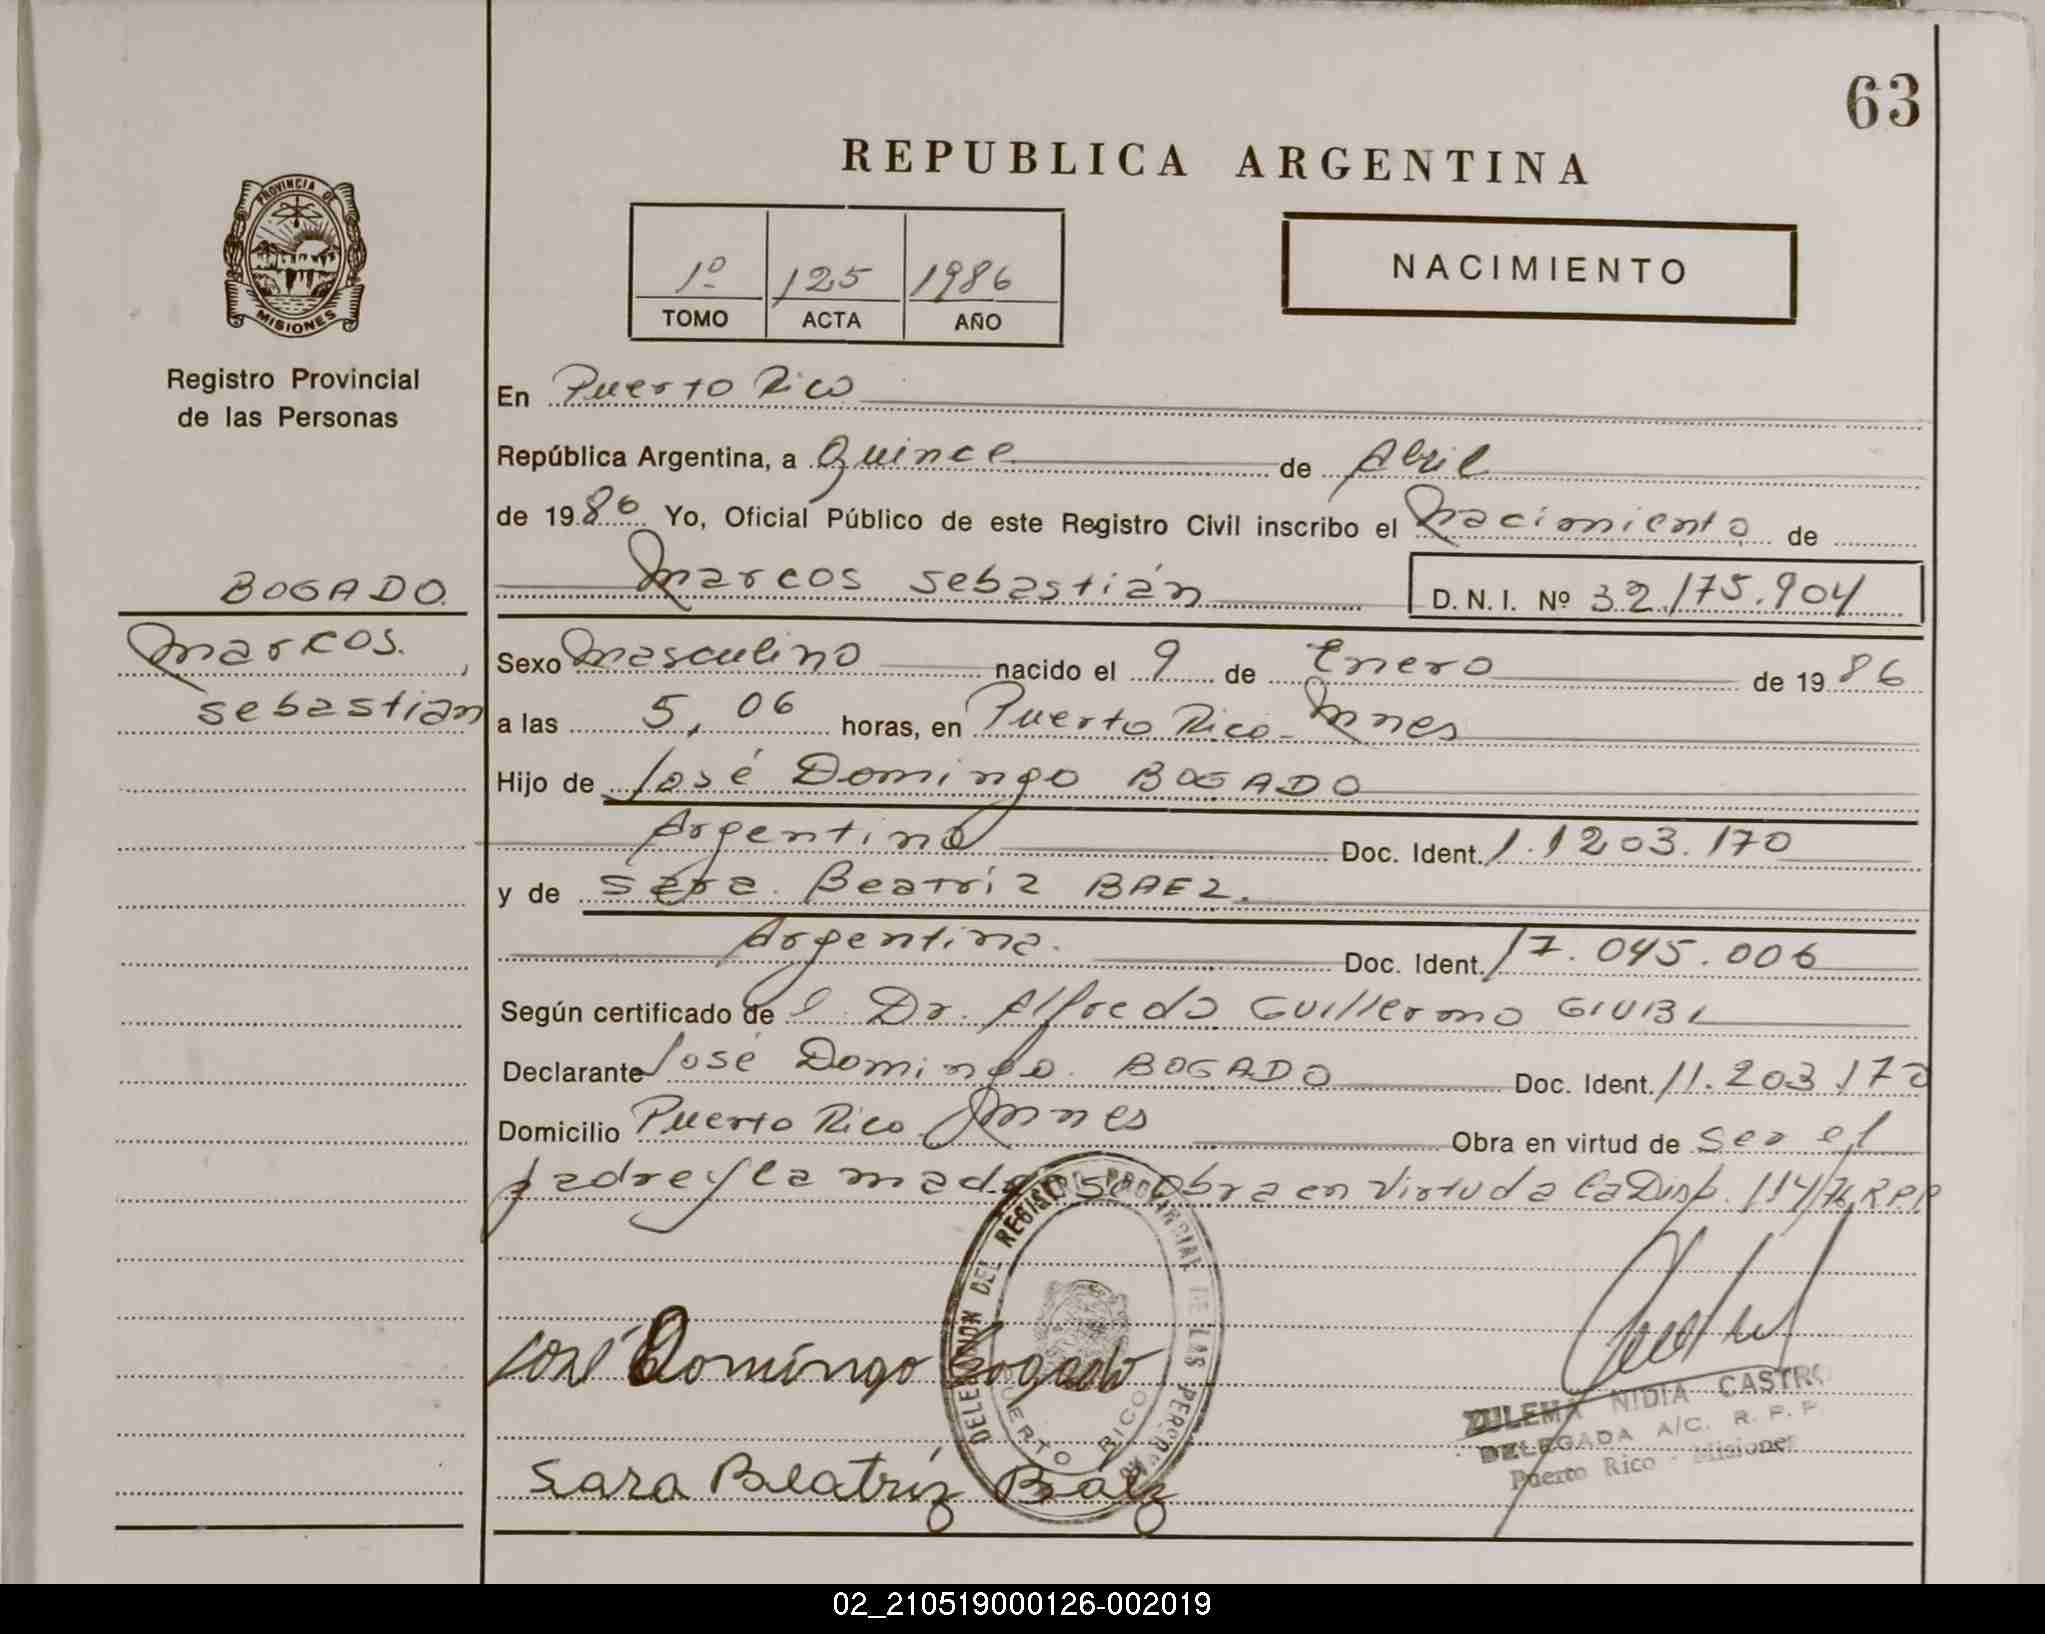 63
REPUBLICA ARGENTINA
PROVINCIA DE
MISIONES
Registro Provincial
de las Personas
1º 125 1986
TOMO ACTA AÑO
NACIMIENTO
En Puerto Rico
República Argentina, a Quince de Abril
de 1986 Yo, Oficial Público de este Registro Civil inscribo el Nacimiento de
BOGADO.
Marcos Sebastián D.N.I. Nº 32.175.904
Marcos.
Sebastian
Sexo Masculino nacido el 9 de Enero de 1986
a las 5,06 horas, en Puerto Rico - Mnes
Hijo de José Domingo BOGADO
Argentino Doc. Ident. 11203.170
y de Sara Beatriz BAEZ.
Argentina. Doc. Ident. 17.045.006
Según certificado de l Dr. Alfredo Guillermo GIUBI
Declarante José Domingo BOGADO Doc. Ident. 11.203.170
Domicilio Puerto Rico Mnes Obra en virtud de ser el
padre y la madre se Obra en Virtud a la Disp. 114/76 R.P.P
José Domingo Bogado
DELEGACION DEL REGISTRO PROVINCIAL DE LAS PERSONAS
PUERTO RICO
ZULEMA NIDIA CASTRO
DELEGADA A/C. R. P. P.
Puerto Rico - Misiones
Sara Beatríz Baez
02_210519000126-002019